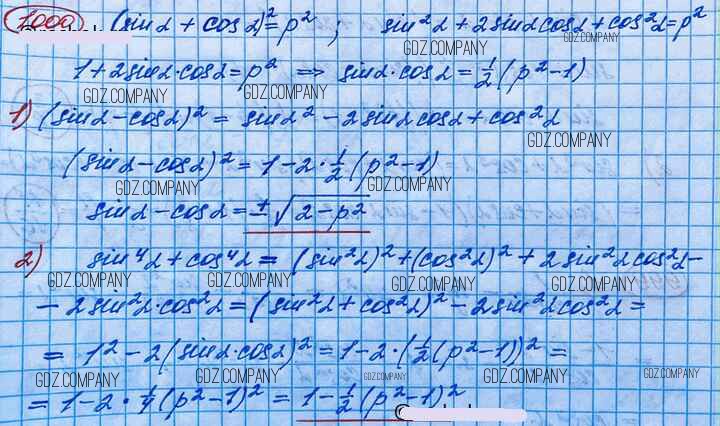 1000 (sinα + cosα)² = p² ; sin²α + 2sinαcosα + cos²α = p²
GDZ.COMPANY GDZ.COMPANY
1 + 2sinα·cosα = p² => sinα·cosα = 1/2 (p² - 1)
GDZ.COMPANY GDZ.COMPANY
1) (sinα - cosα)² = sinα² - 2sinαcosα + cos²α
GDZ.COMPANY
(sinα - cosα)² = 1 - 2·1/2 (p² - 1)
GDZ.COMPANY GDZ.COMPANY
sinα - cosα = ±√(2 - p²)
2) sin⁴α + cos⁴α = (sin²α)² + (cos²α)² + 2sin²αcos²α -
GDZ.COMPANY GDZ.COMPANY GDZ.COMPANY
- 2sin²α·cos²α = (sin²α + cos²α)² - 2sin²αcos²α =
= 1² - 2(sinα·cosα)² = 1 - 2·(1/2(p² - 1))² =
GDZ.COMPANY GDZ.COMPANY GDZ.COMPANY GDZ.COMPANY GDZ.COMPANY
= 1 - 2·1/4 (p² - 1)² = 1 - 1/2 (p² - 1)²